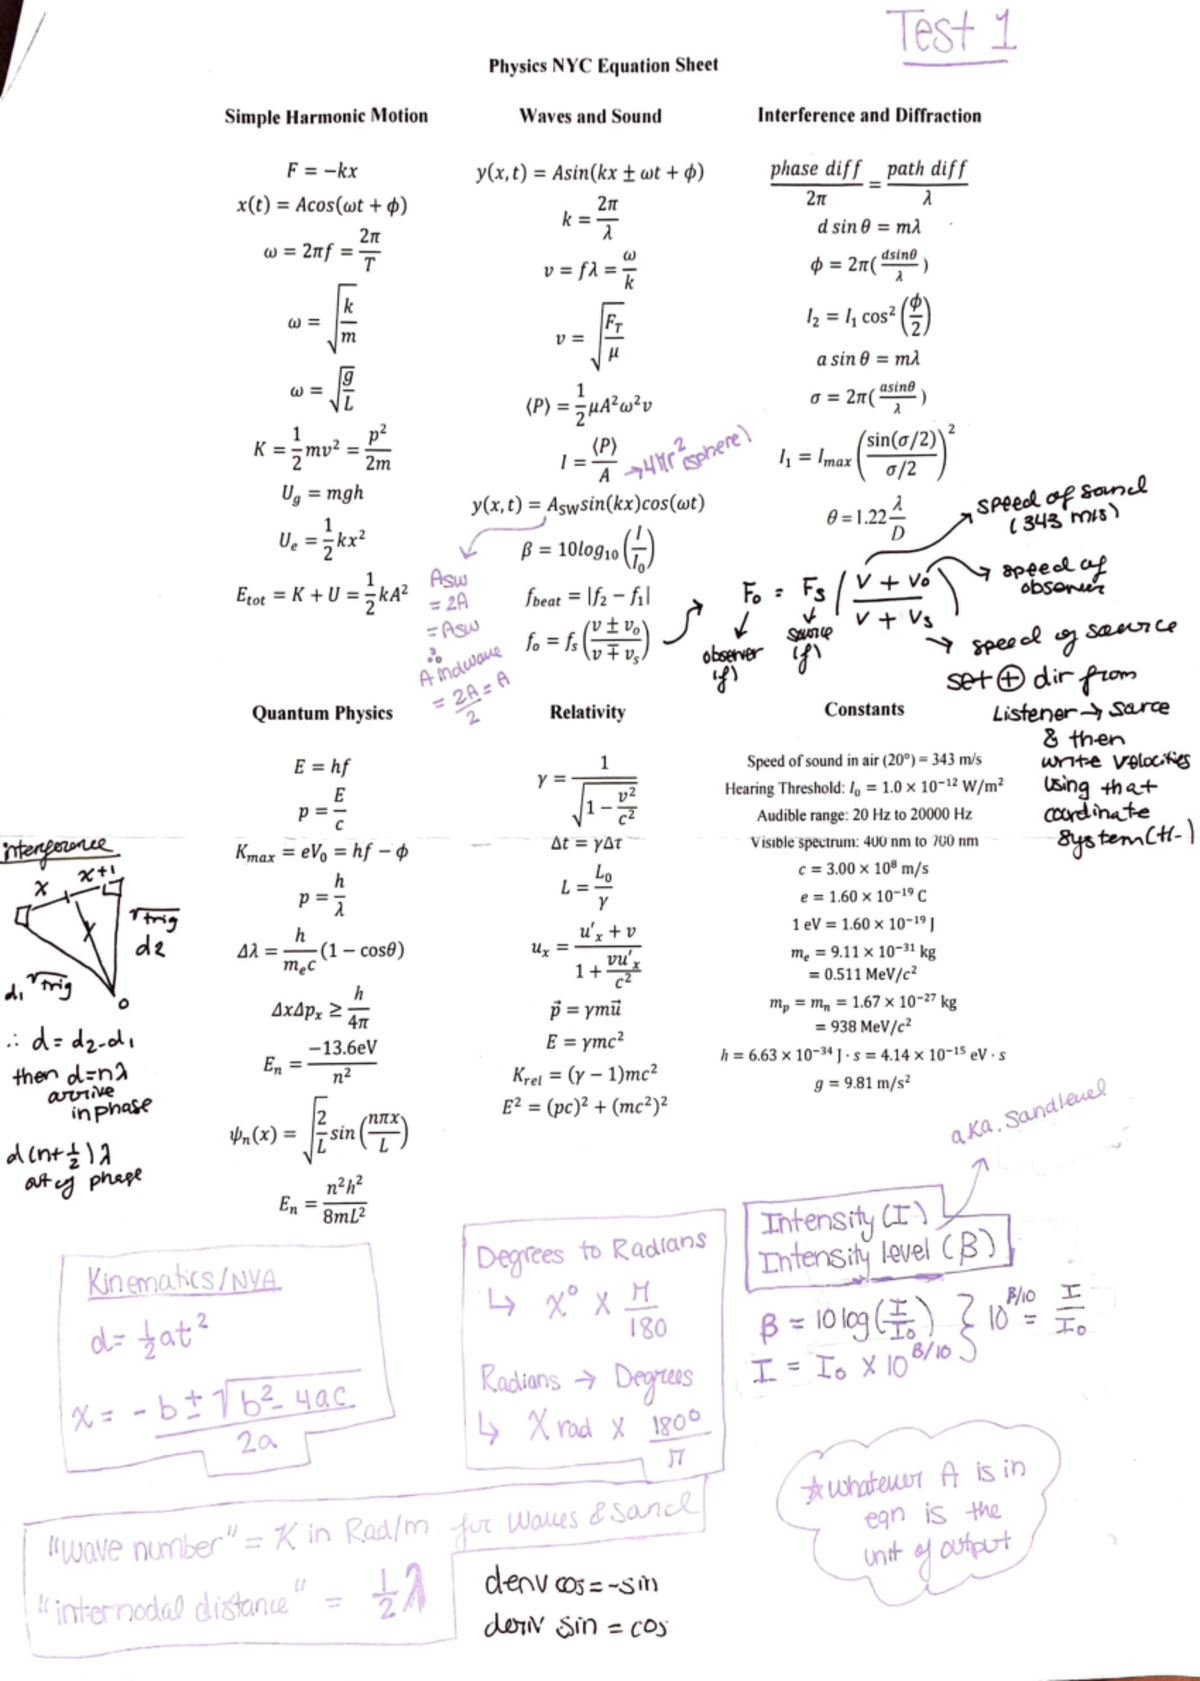 Test 1
Physics NYC Equation Sheet
Simple Harmonic Motion
F = −kx
x(t) = Acos(ωt + ϕ)
ω = 2πf = 2π/T
ω = √(k/m)
ω = √(g/L)
K = 1/2 mv² = p²/2m
U_g = mgh
U_e = 1/2 kx²
E_tot = K + U = 1/2 kA²
Waves and Sound
y(x,t) = Asin(kx ± ωt + ϕ)
k = 2π/λ
v = fλ = ω/k
v = √(F_T/μ)
⟨P⟩ = 1/2 μA²ω²v
I = ⟨P⟩/A
→4πr² (sphere)
y(x,t) = A_SW sin(kx)cos(ωt)
Asw
= 2A
= Asw
∴
A indwave
= 2A/2 = A
β = 10log₁₀(I/I₀)
f_beat = |f₂ − f₁|
f_o = f_s((v ± v_o)/(v ∓ v_s))
Interference and Diffraction
phase diff/2π = path diff/λ
d sin θ = mλ
ϕ = 2π(dsinθ/λ)
I₂ = I₁ cos²(ϕ/2)
a sin θ = mλ
σ = 2π(asinθ/λ)
I₁ = I_max (sin(σ/2)/(σ/2))²
θ = 1.22 λ/D
speed of sound
(343 m/s)
Fo = Fs (V + Vo / V + Vs)
speed of
observer
observer
(f)
source
(f)
speed of source
set ⊕ dir from
Listener → sarce
& then
write velocities
using that
coordinate
system (+/-)
Quantum Physics
E = hf
p = E/c
K_max = eV₀ = hf − ϕ
p = h/λ
Δλ = h/(m_e c) (1 − cosθ)
ΔxΔp_x ≥ h/4π
E_n = −13.6eV/n²
ψ_n(x) = √(2/L) sin(nπx/L)
E_n = n²h²/8mL²
Relativity
γ = 1/√(1 − v²/c²)
Δt = γΔτ
L = L₀/γ
u_x = (u'_x + v)/(1 + vu'_x/c²)
p⃗ = γmu⃗
E = γmc²
K_rel = (γ − 1)mc²
E² = (pc)² + (mc²)²
Constants
Speed of sound in air (20°) = 343 m/s
Hearing Threshold: I₀ = 1.0 × 10⁻¹² W/m²
Audible range: 20 Hz to 20000 Hz
Visible spectrum: 400 nm to 700 nm
c = 3.00 × 10⁸ m/s
e = 1.60 × 10⁻¹⁹ C
1 eV = 1.60 × 10⁻¹⁹ J
m_e = 9.11 × 10⁻³¹ kg
= 0.511 MeV/c²
m_p = m_n = 1.67 × 10⁻²⁷ kg
= 938 MeV/c²
h = 6.63 × 10⁻³⁴ J · s = 4.14 × 10⁻¹⁵ eV · s
g = 9.81 m/s²
interference
x x+1
√trig
d2
d₁ √trig
O
∴ d = d₂-d₁
then d=nλ
arrive
in phase
d(n+1/2)λ
out of phase
Kinematics/NYA
d = 1/2 at²
x = -b ± √(b² - 4ac) / 2a
Degrees to Radians
↳ x° × π/180
Radians → Degrees
↳ X rad × 180°/π
aka. Sandlevel
Intensity (I)
Intensity level (β)
β = 10 log(I/I₀) } 10^(β/10) = I/I₀
I = I₀ × 10^(β/10)
☆ whatever A is in
eqn is the
unit of output
"wave number" = K in Rad/m for waves & Sand
"internodal distance" = 1/2 λ
deriv cos = -sin
deriv sin = cos